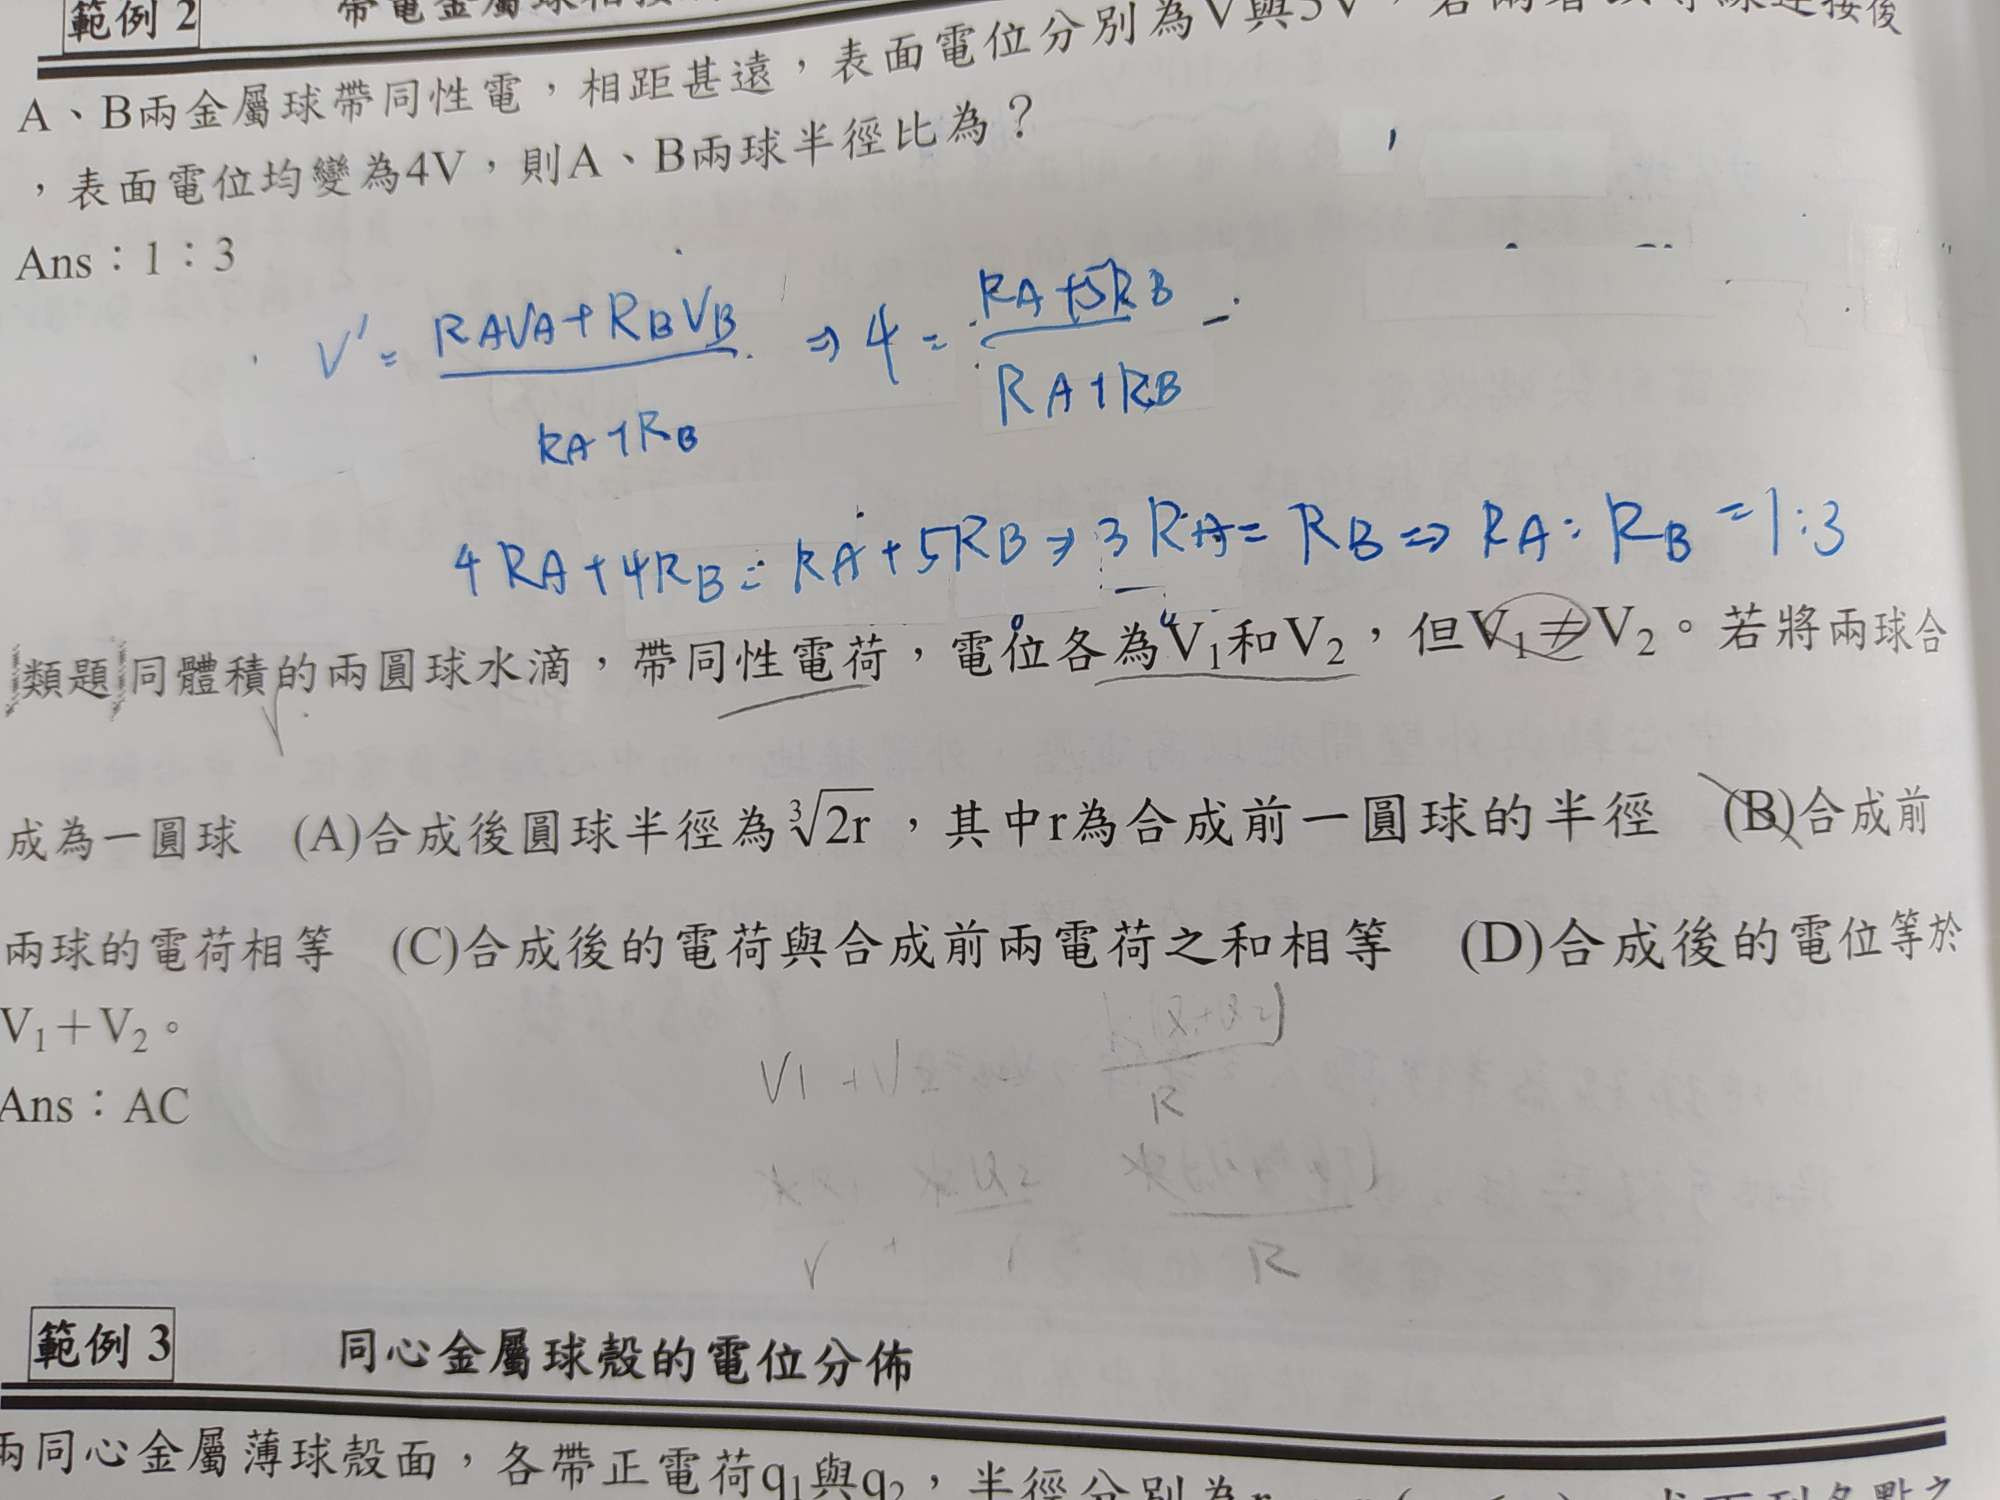 範例 2
A、B兩金屬球帶同性電，相距甚遠，表面電位分別為V與5V，若兩者以導線連接後
，表面電位均變為4V，則A、B兩球半徑比為？
Ans：1：3
V' = RAVA+RBVB / RA+RB ⇒ 4 = RA+5RB / RA+RB
4RA+4RB = RA+5RB ⇒ 3RA = RB ⇒ RA : RB = 1:3
類題 同體積的兩圓球水滴，帶同性電荷，電位各為V₁和V₂，但V₁≠V₂。若將兩球合
成為一圓球 (A)合成後圓球半徑為∛2r，其中r為合成前一圓球的半徑 (B)合成前
兩球的電荷相等 (C)合成後的電荷與合成前兩電荷之和相等 (D)合成後的電位等於
V₁＋V₂。
Ans：AC
V1 + V2
R
R
範例 3 同心金屬球殼的電位分佈
兩同心金屬薄球殼面，各帶正電荷q₁與q₂，半徑分別為